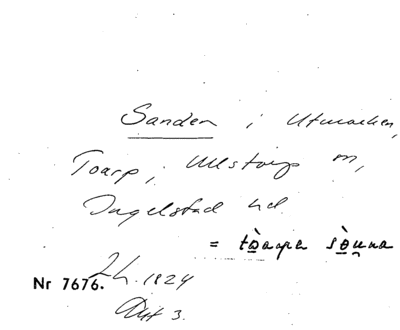 Sanden i Utmarken,
Toarp, Ullstorp sn,
Ingelstad hd.
= tò̱arpa sò̱u̱na
Nr 7676. Lh. 1824
Akt 3.